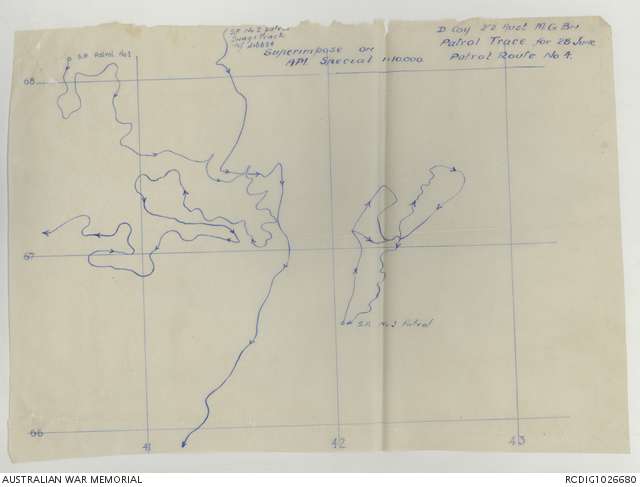 S.P. No 2 Patrol
Track
D Coy 2/2 Aust M.G. Bn
Patrol Trace for 28 June
Patrol Route No 4.
Superimpose on
API Special 1:10.000
S.P. Patrol No 1
68
67
S.P. No 3 Patrol
66
41
42
43
AUSTRALIAN WAR MEMORIAL
RCDIG1026680